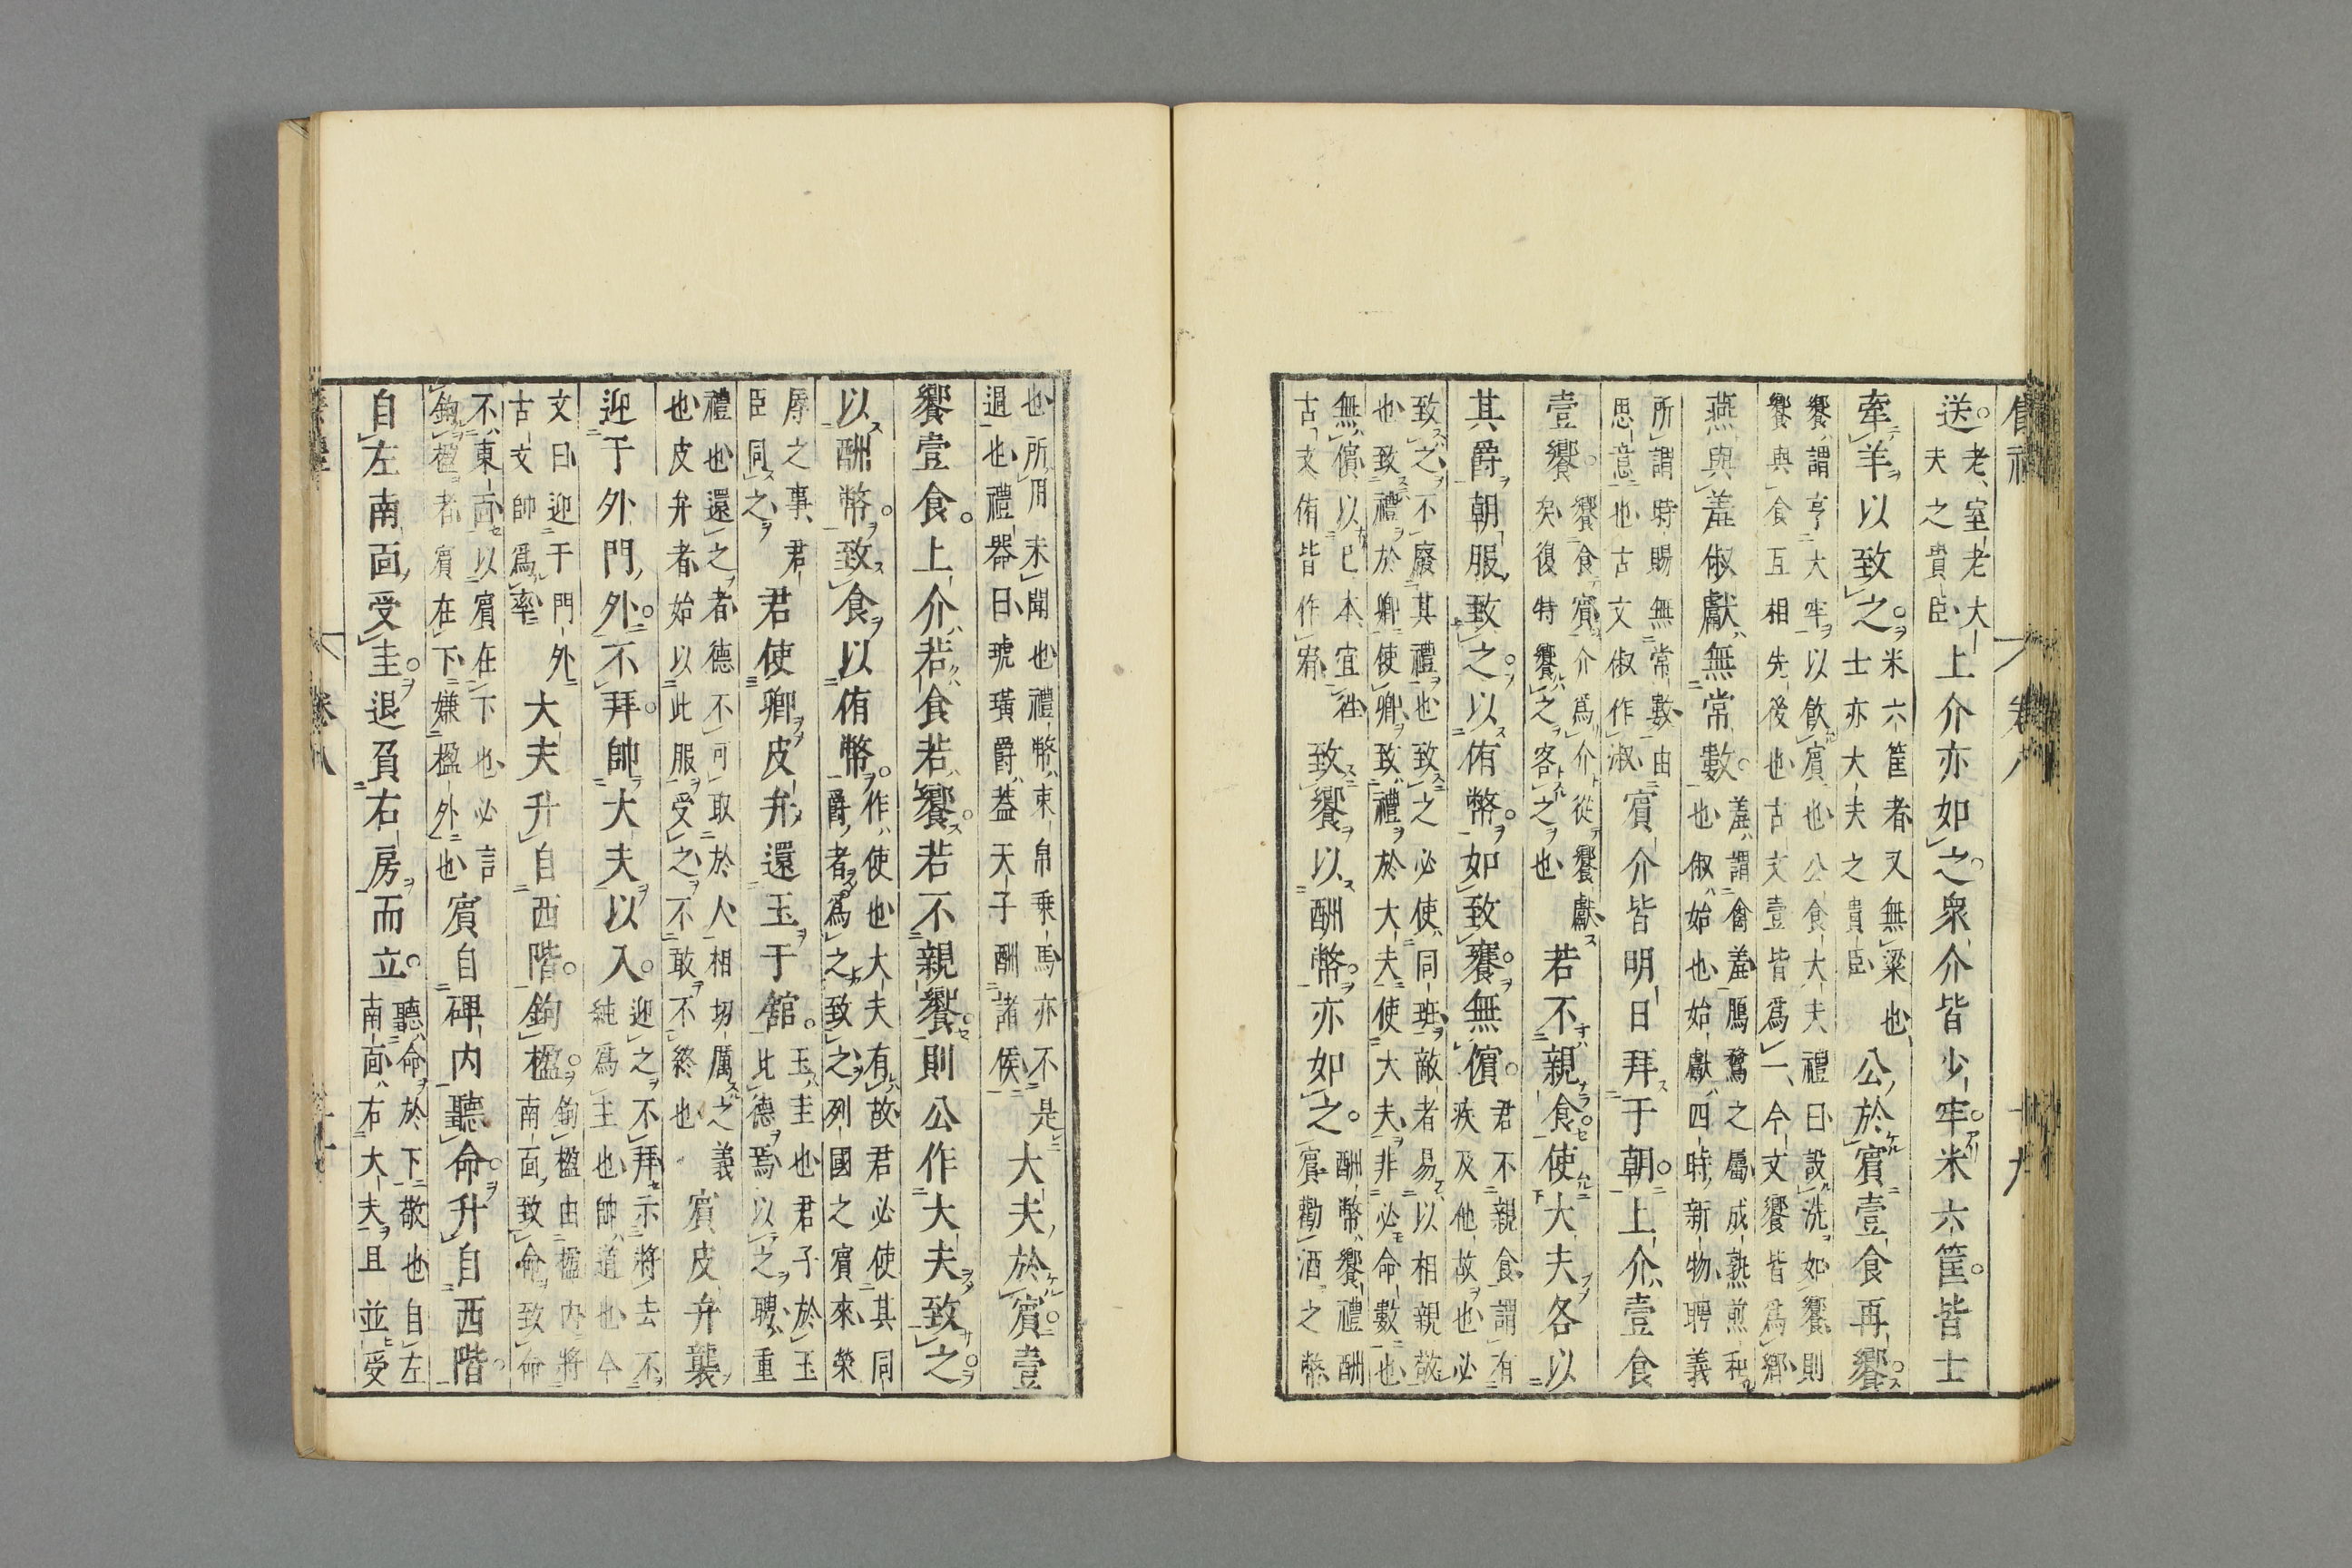 送老室老大
夫之貴臣
上介亦如之衆介皆少牢米六筐皆士
牽羊以致之
米六筐者又無粱也
士亦大夫之貴臣
公於賓壹食再饗
饗謂亨大牢以飮賓也公食大夫禮曰設洗如饗則
饗與食互相先後也古文壹皆爲一今文饗皆爲鄉
燕與羞俶獻無常數
羞謂禽羞鴈鶩之屬成熟煎和
也俶始也始獻四時新物聘義
所謂時賜無常數由
思意也古文俶作淑
賓介皆明日拜于朝上介壹食
壹饗
饗食賓介爲介從饗獻
矣復特饗之客之也
若不親食使大夫各以
其爵朝服致之以侑幣如致饔無儐
君不親食謂有
疾及他故也必
致之不廢其禮也致之必使同班敵者易以相親敬
也致禮於卿使卿致禮於大夫使大夫非必命數也
無儐以已本宜往
古文侑皆作宥
致饗以酬幣亦如之
酬幣饗禮酬
賓勸酒之幣
也所用未聞也禮幣束帛乘馬亦不是
過也禮器曰琥璜爵蓋天子酬諸侯
大夫於賓壹
饗壹食上介若食若饗若不親饗則公作大夫致之
以酬幣致食以侑幣
作使也大夫有故君必使其同
爵者爲之致之列國之賓來榮
辱之事君
臣同之
君使卿皮弁還玉于舘
玉圭也君子於玉
比德焉以之聘重
禮也還之者德不可取於人相切厲之義
也皮弁者始以此服受之不敢不終也
賓皮弁襲
迎于外門外不拜帥大夫以入
迎之不拜示將去不
純爲主也帥道也今
文曰迎于門外
古文帥爲率
大夫升自西階鉤楹
鉤楹由楹内將
南面致命致命
不東面以賓在下也必言
鉤楹者賓在下嫌楹外也
賓自碑内聽命升自西階
自左南面受圭退負右房而立
聽命於下敬也自左
南面右大夫且並受